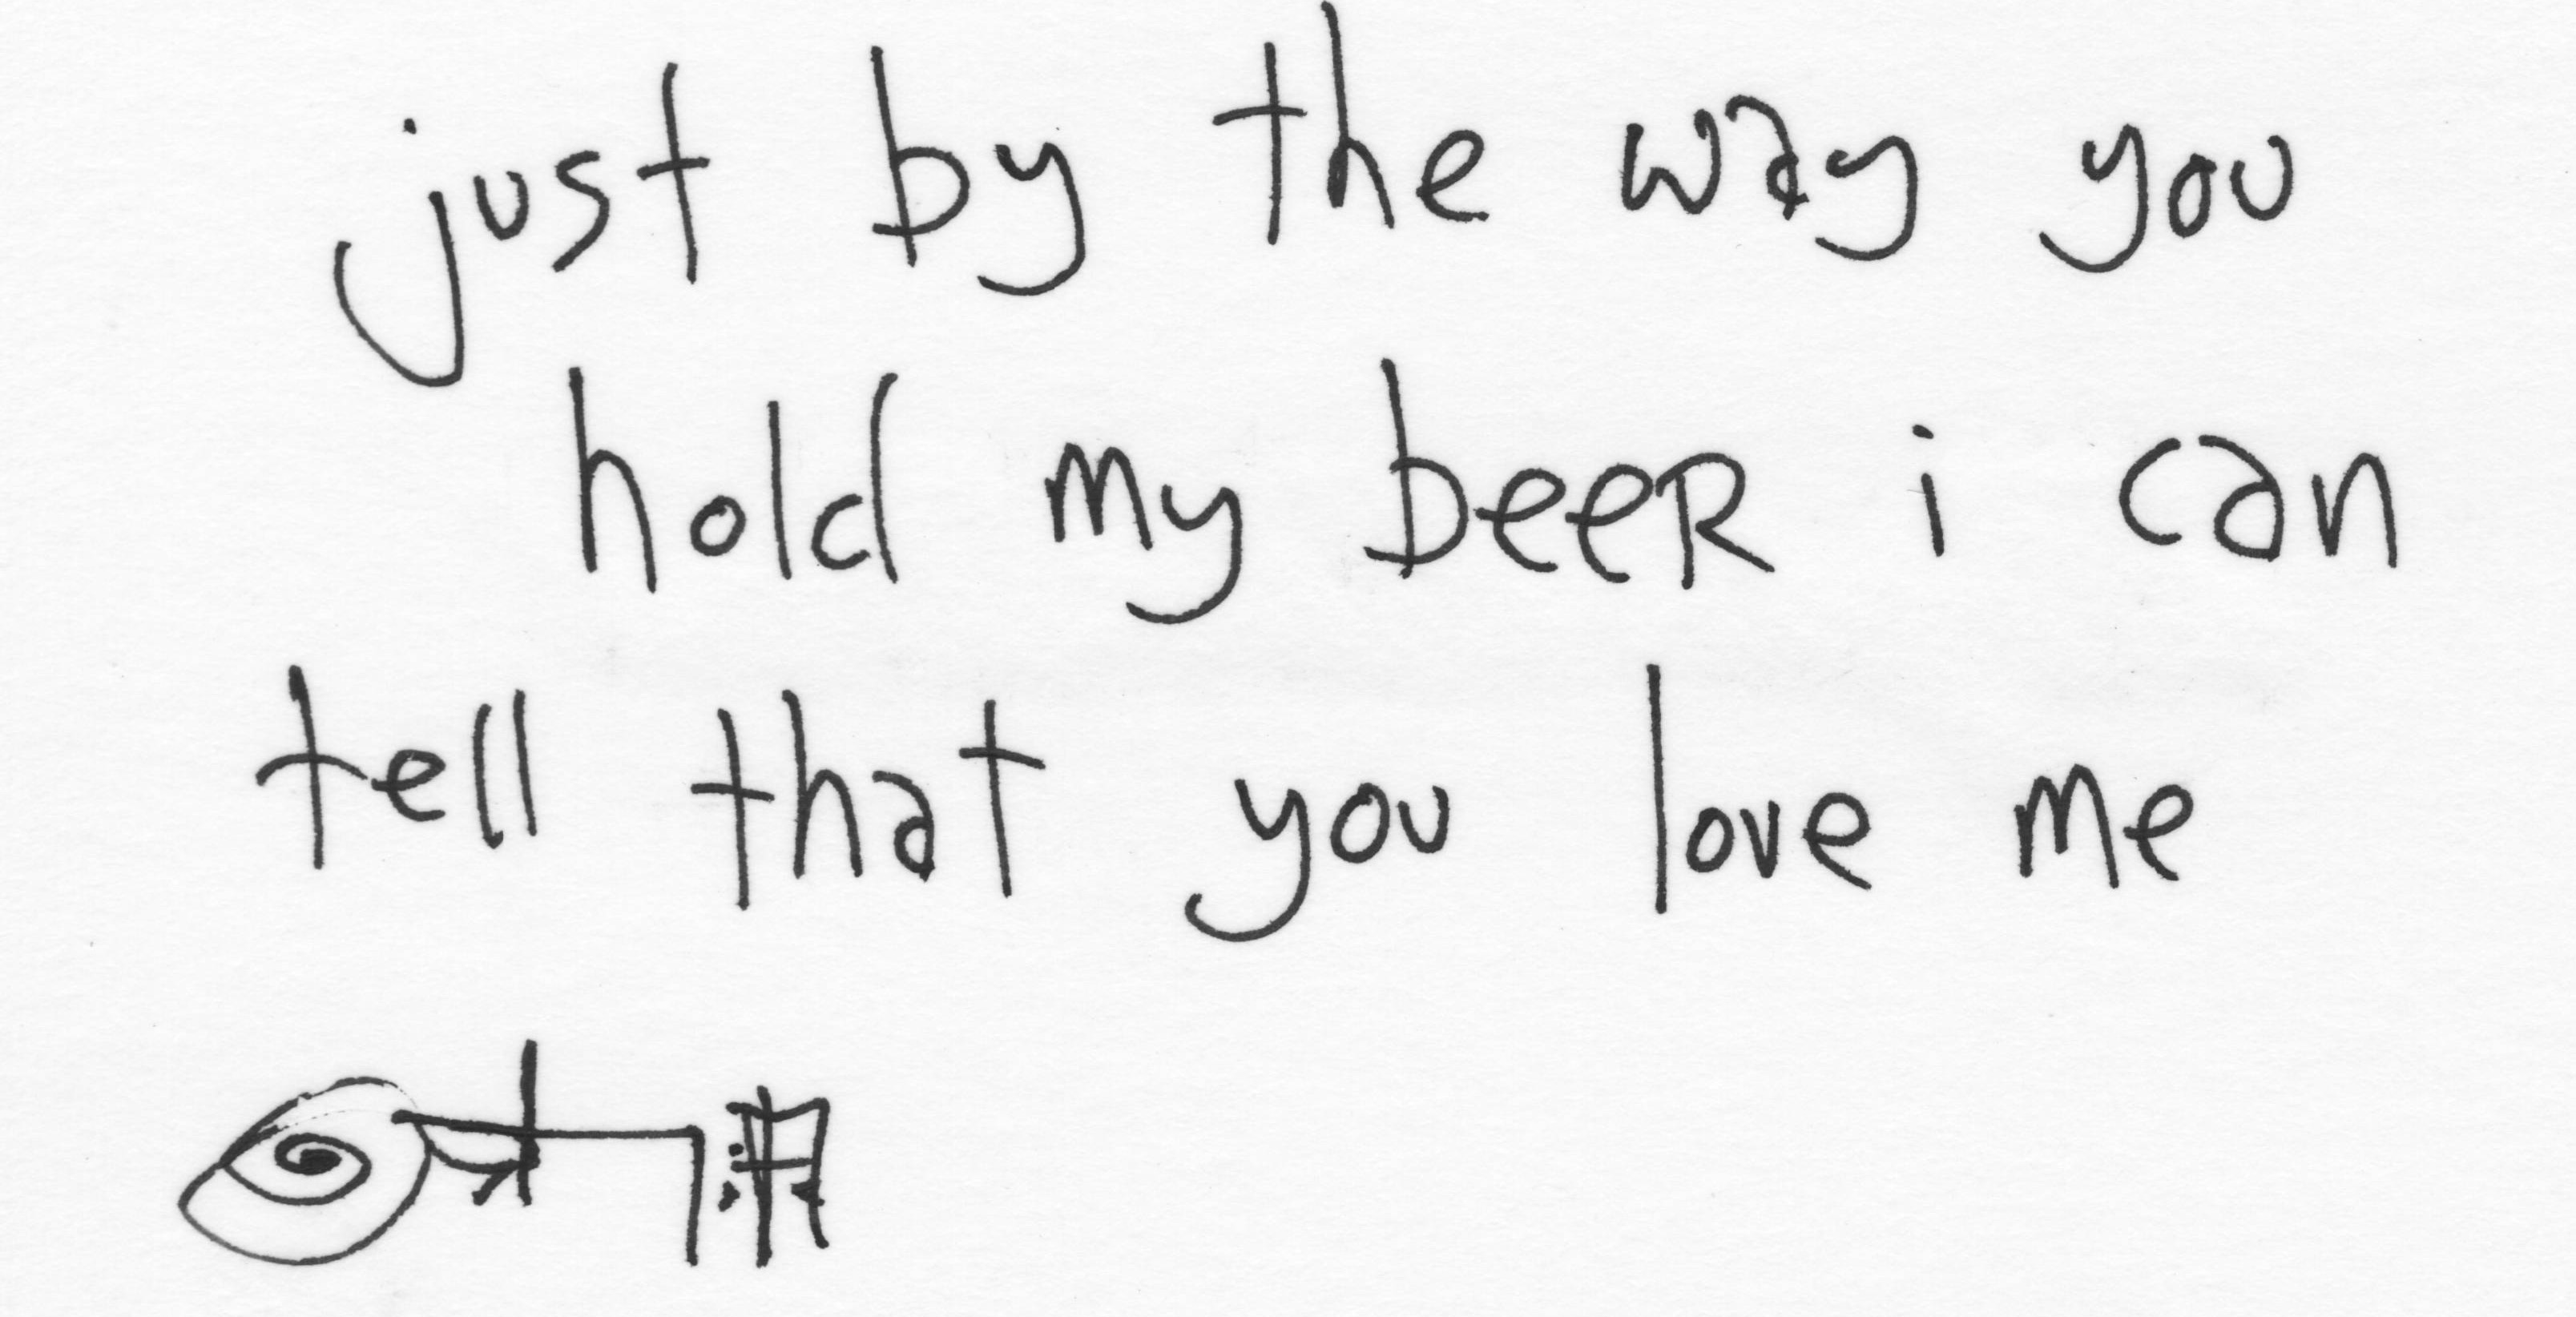 just by the way you
hold my beeR i can
tell that you love me